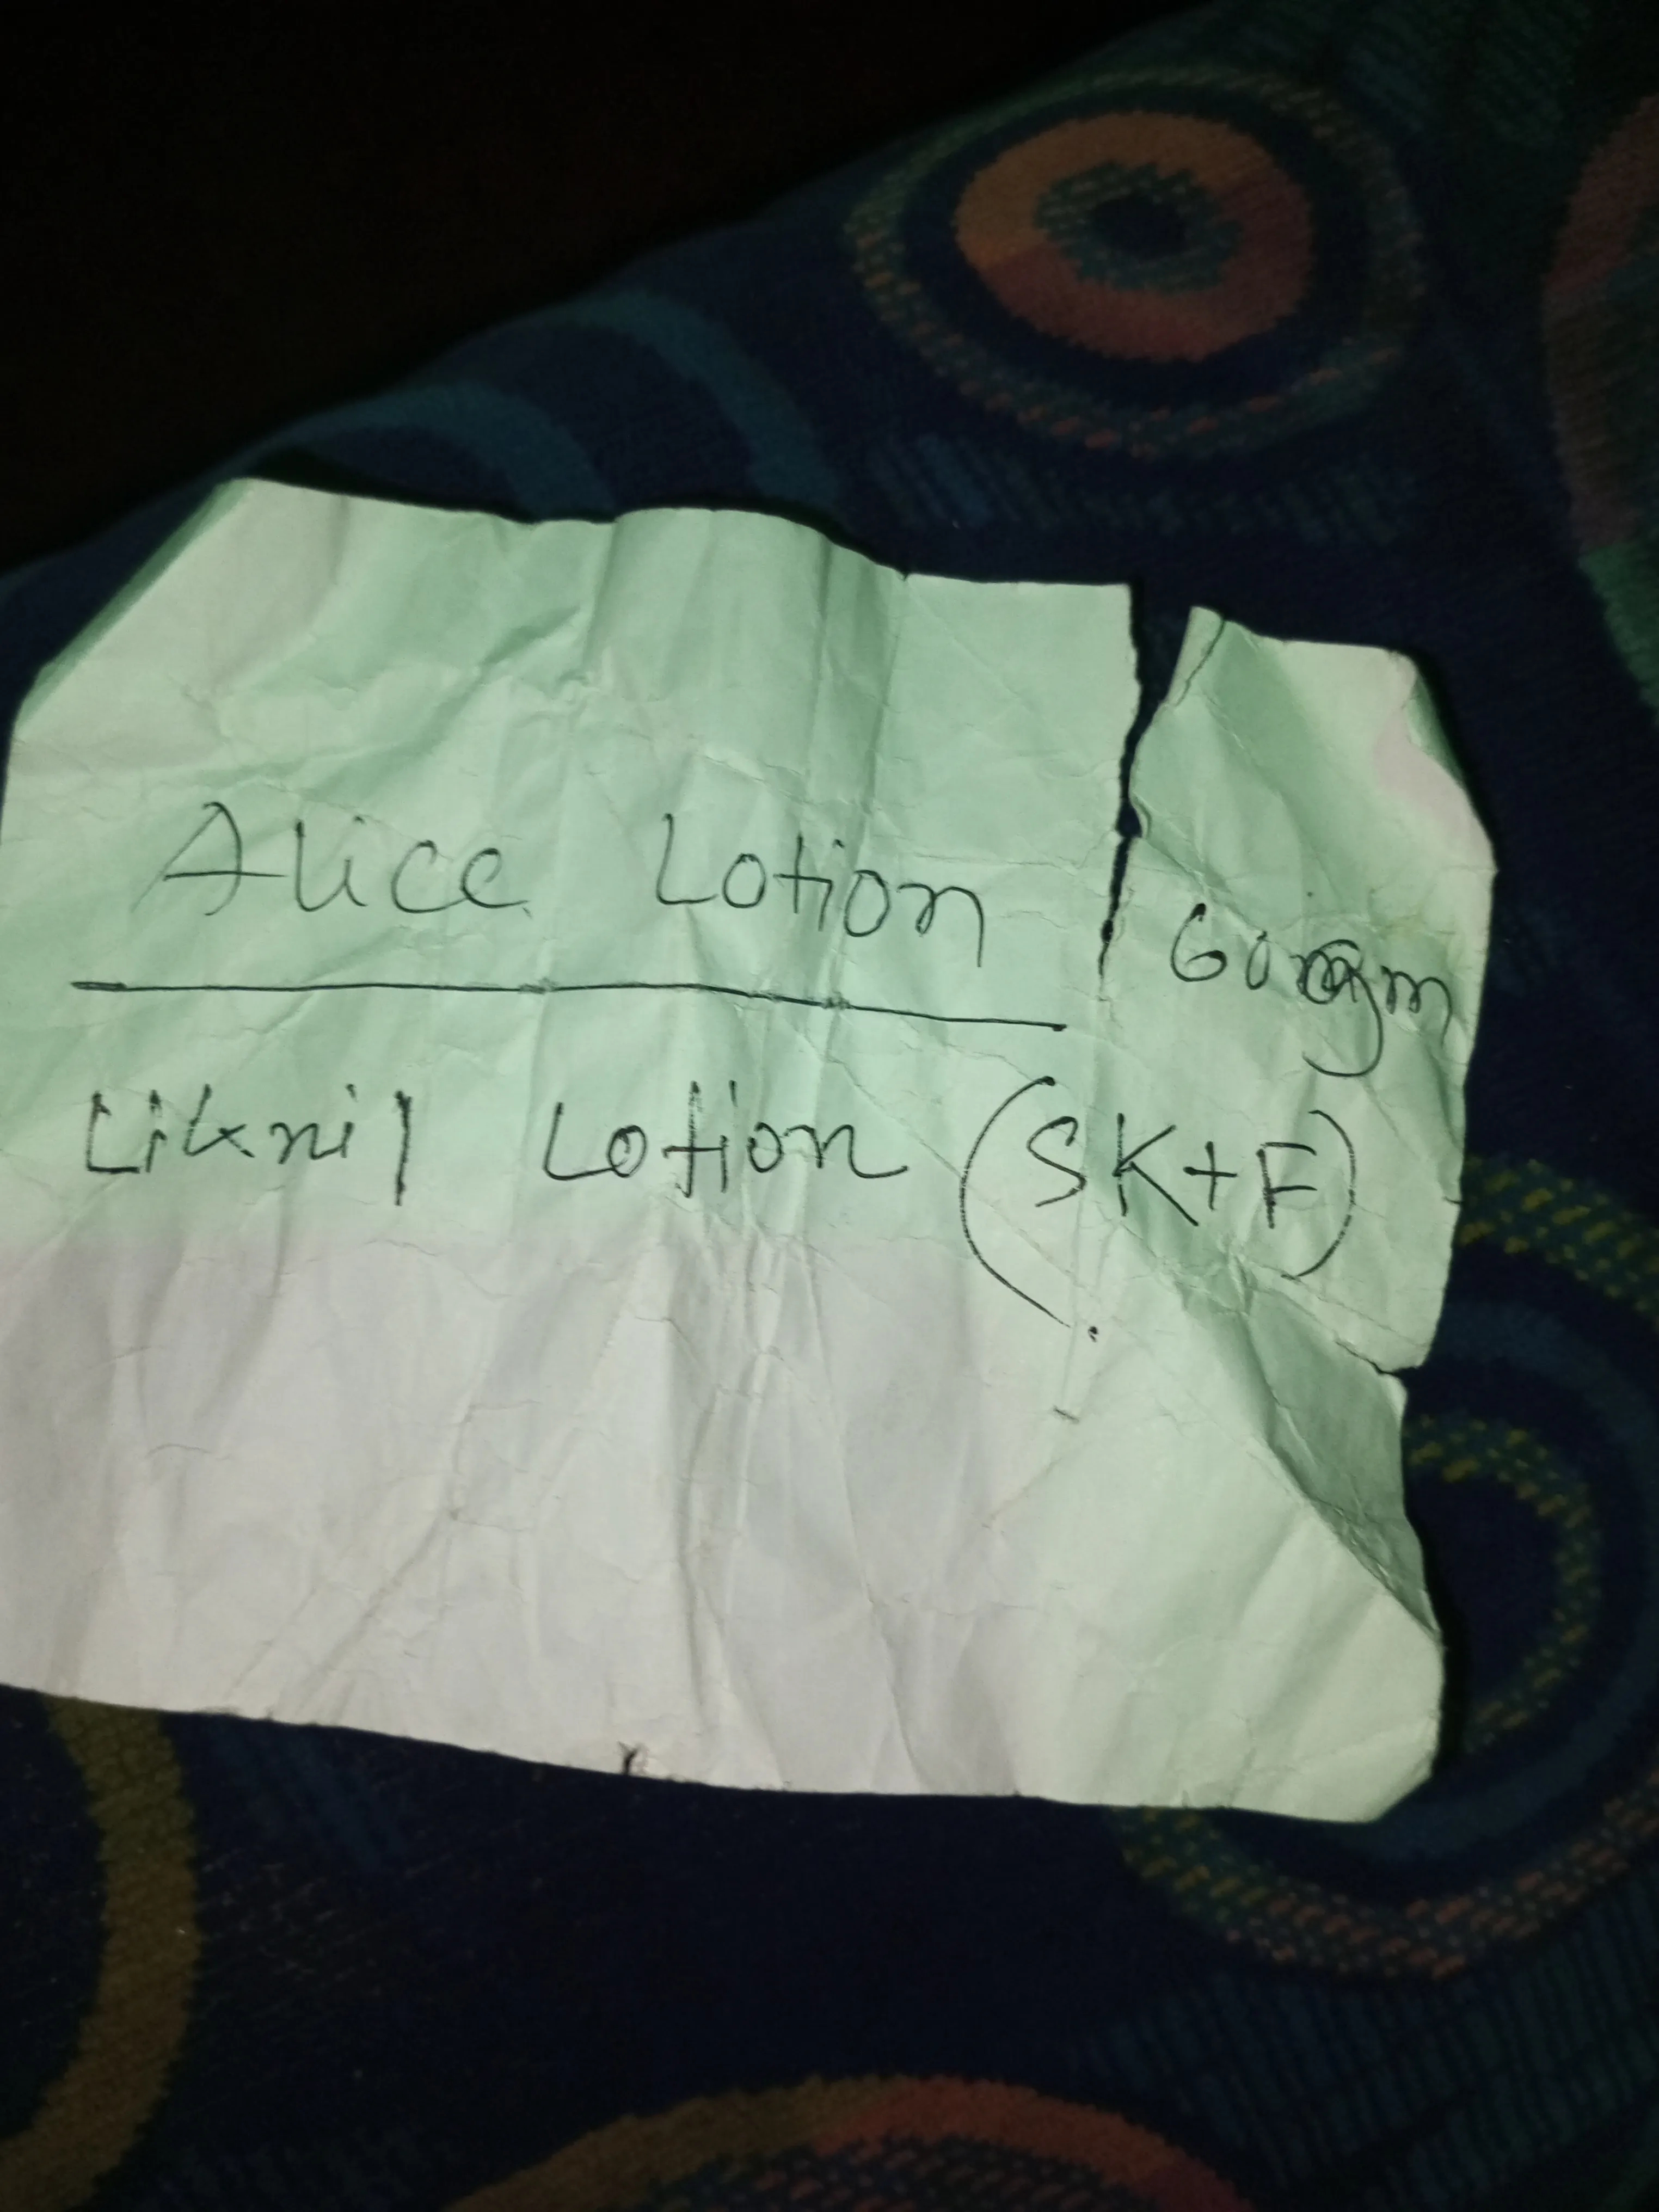 Alice Lotion 60 gm
Liknil Lotion (SK+F)